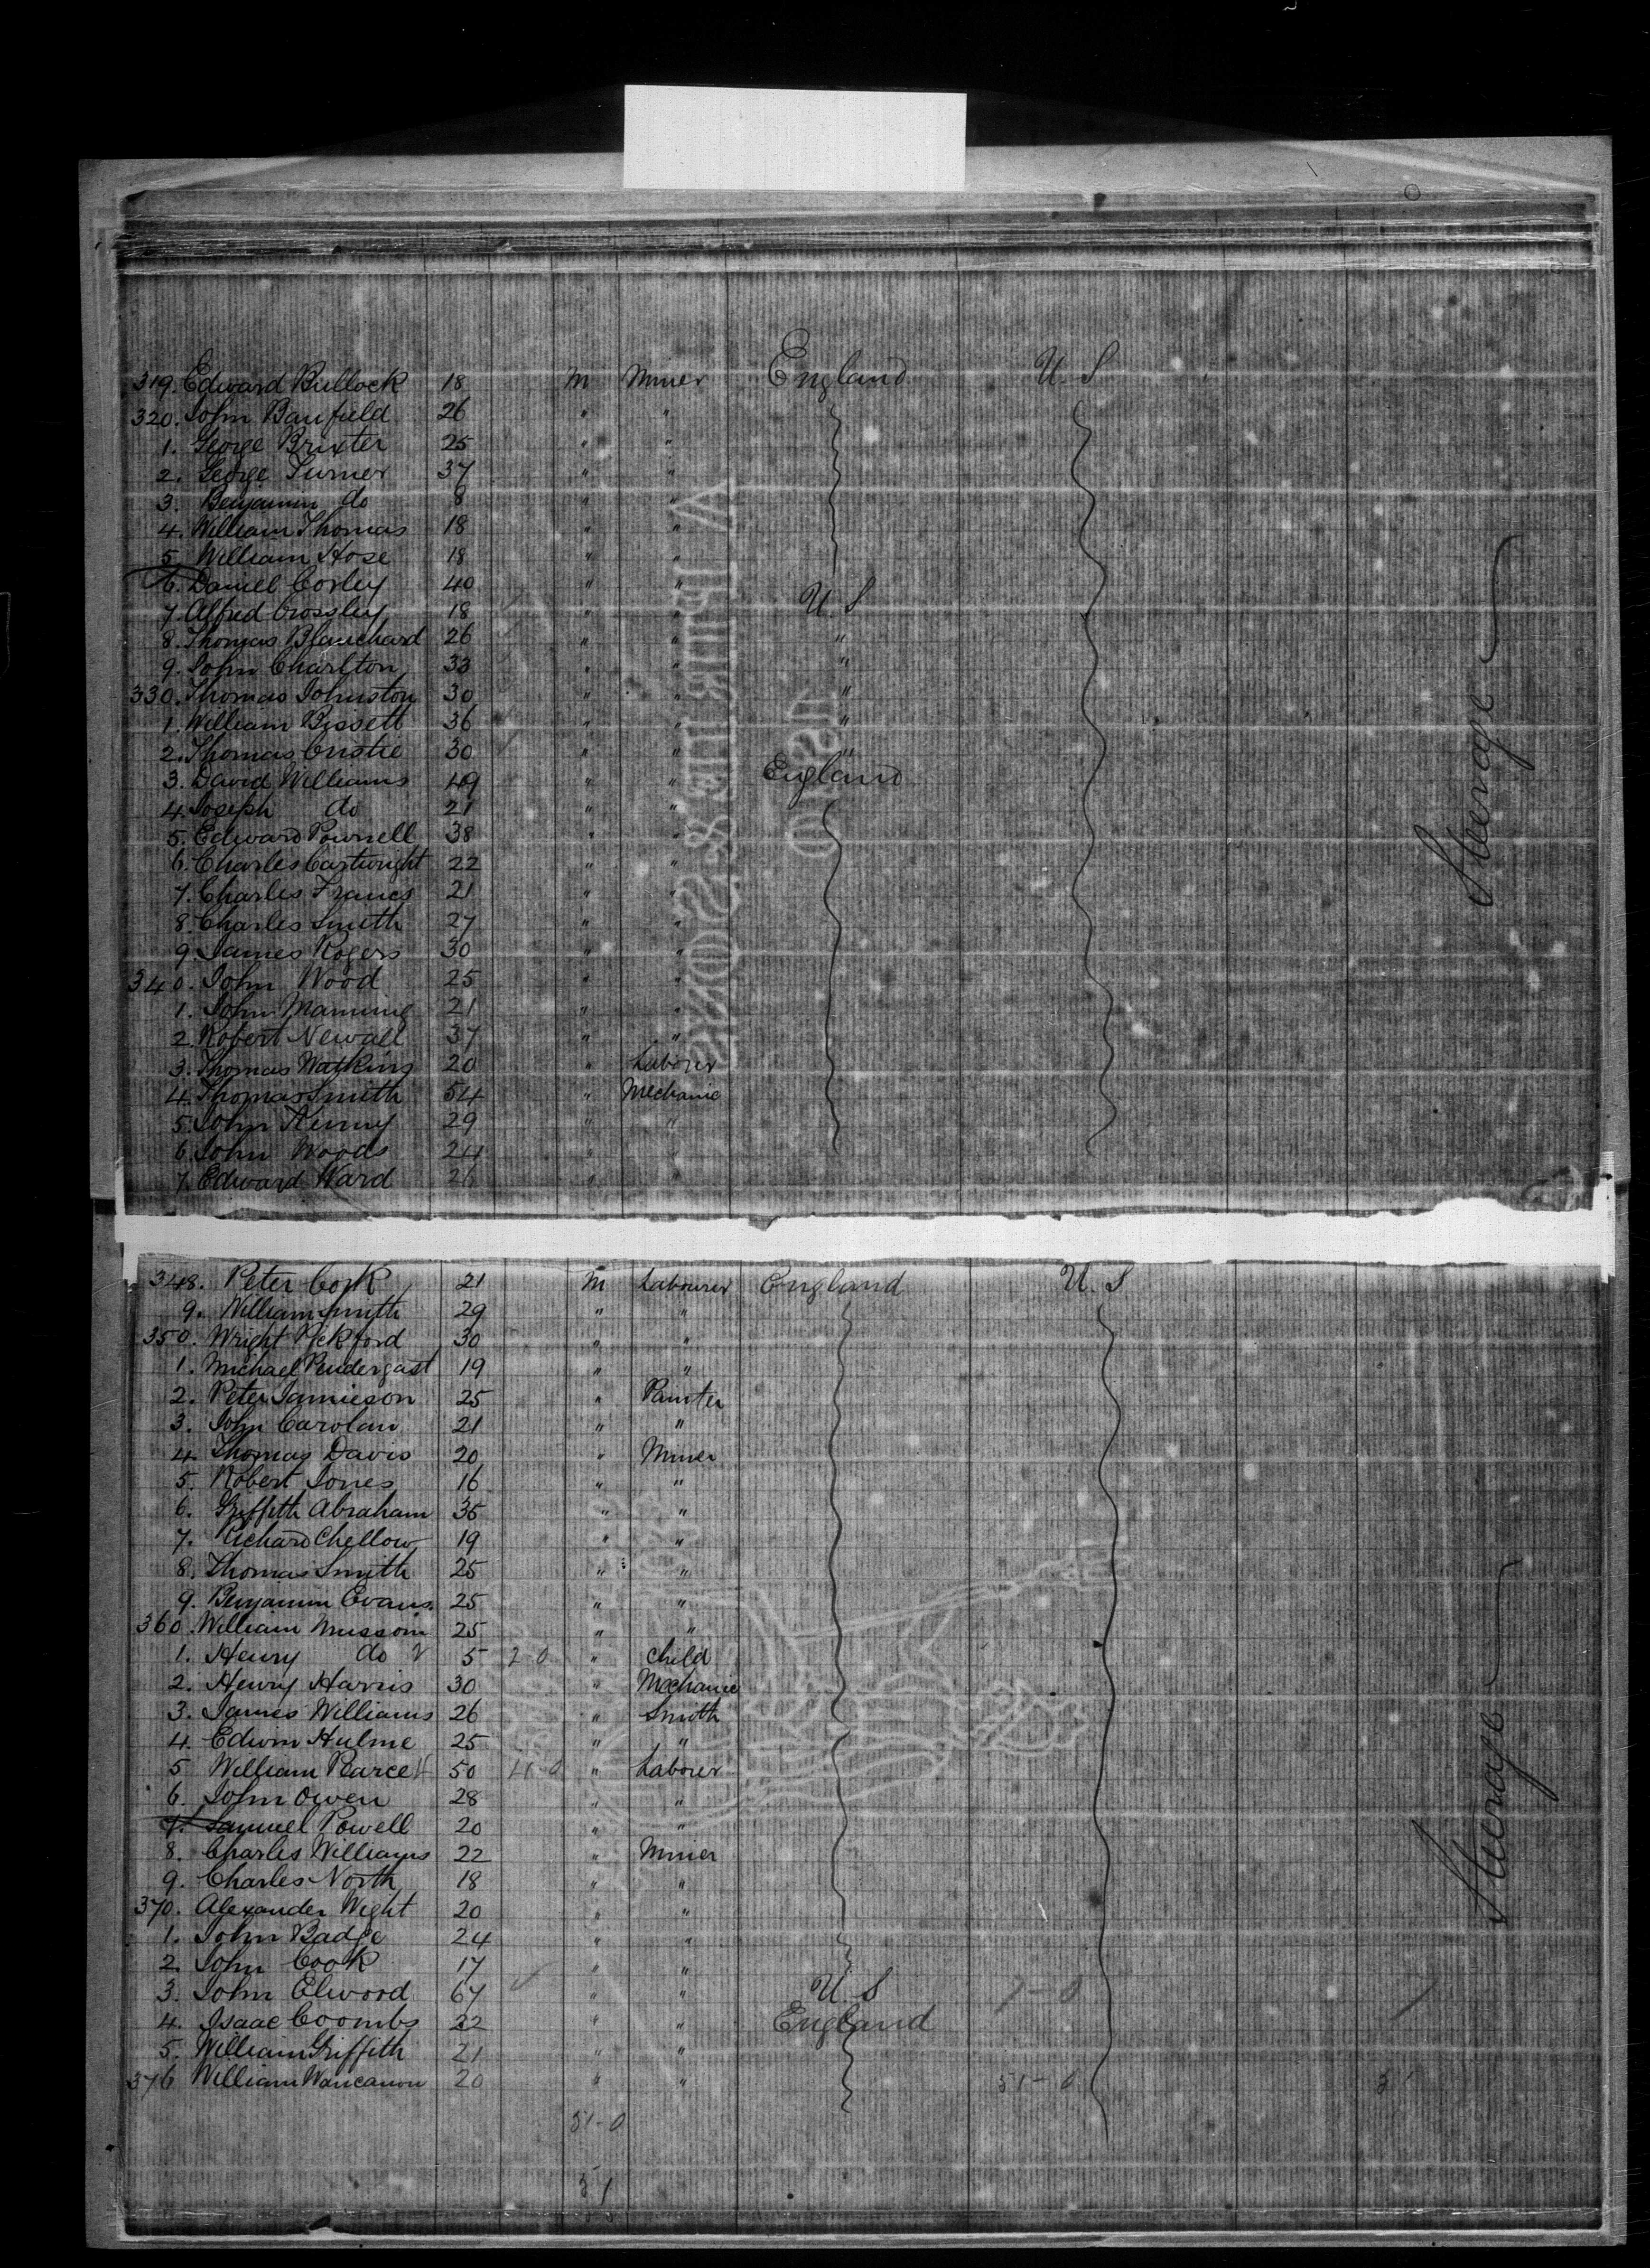 319. Edward Bullock 18 M Miner England U. S
320. John Banfield 26 " "
1. George Brixter 25 " "
2. George Turner 37 " "
3. Benjamin do 8 " "
4. William Thomas 18 " "
5. William Hose 18 " "
6. Daniel Corley 40 " "
7. Alfred Crossley 18 " " U. S
8. Thomas Blanchard 26 " " "
9. John Charlton 33 " " "
330. Thomas Johnston 30 " " "
1. William Bissett 36 " " "
2. Thomas Cristie 30 " " "
3. David Williams 49 " " England
4. Joseph do 21 " "
5. Edward Pownell 38 " "
6. Charles Cartwright 22 " "
7. Charles Francis 21 " "
8. Charles Smith 27 " "
9. James Rogers 30 " "
340. John Wood 25 " "
1. John Manning 21 " "
2. Robert Newall 37 " "
3. Thomas Watkins 20 " Laborer
4. Thomas Smith 54 " Mechanic
5. John Kenny 29 " "
6. John Woods 24 " "
7. Edward Ward 26 " "
Steerage
348. Peter Cork 21 M Labourer England U. S
9. William Smith 29 " "
350. Wright Pickford 30 " "
1. Michael Pendergast 19 " "
2. Peter Jamieson 25 " Painter
3. John Carolan 21 " "
4. Thomas Davis 20 " Miner
5. Robert Jones 16 " "
6. Griffith Abraham 35 " "
7. Richard Chellow 19 " "
8. Thomas Smith 25 " "
9. Benjamin Evans. 25 " "
360. William Mussom 25 " "
1. Henry do 5 2-0 " Child
2. Henry Harris 30 " Mechanic
3. James Williams 26 " Smith
4. Edwin Hulme 25 " "
5 William Pearce 50 " Laborer
6. John Owen 28 " "
7. Samuel Powell 20 " "
8. Charles Williams 22 " Miner
9. Charles North 18 " "
370. Alexander Wight 20 " "
1. John Badge 24 " "
2. John Cook 17 " "
3. John Elwood 67 " " U. S 7-0 7
4. Isaac Coombs 22 " " England
5. William Griffith 21 " "
376 William 20 " " 51-0
51-0
51
Steerage